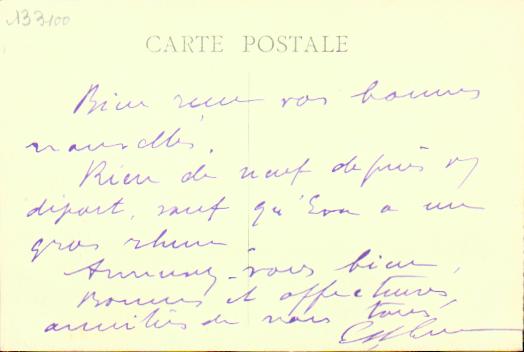 133100
CARTE POSTALE
Bien reçu vos bonnes
nouvelles.
Rien de neuf depuis
départ, sauf qu'Eva a un
gros rhume
Amusez-vous bien,
Bonnes et affectueuses
amitiés de nous tous,